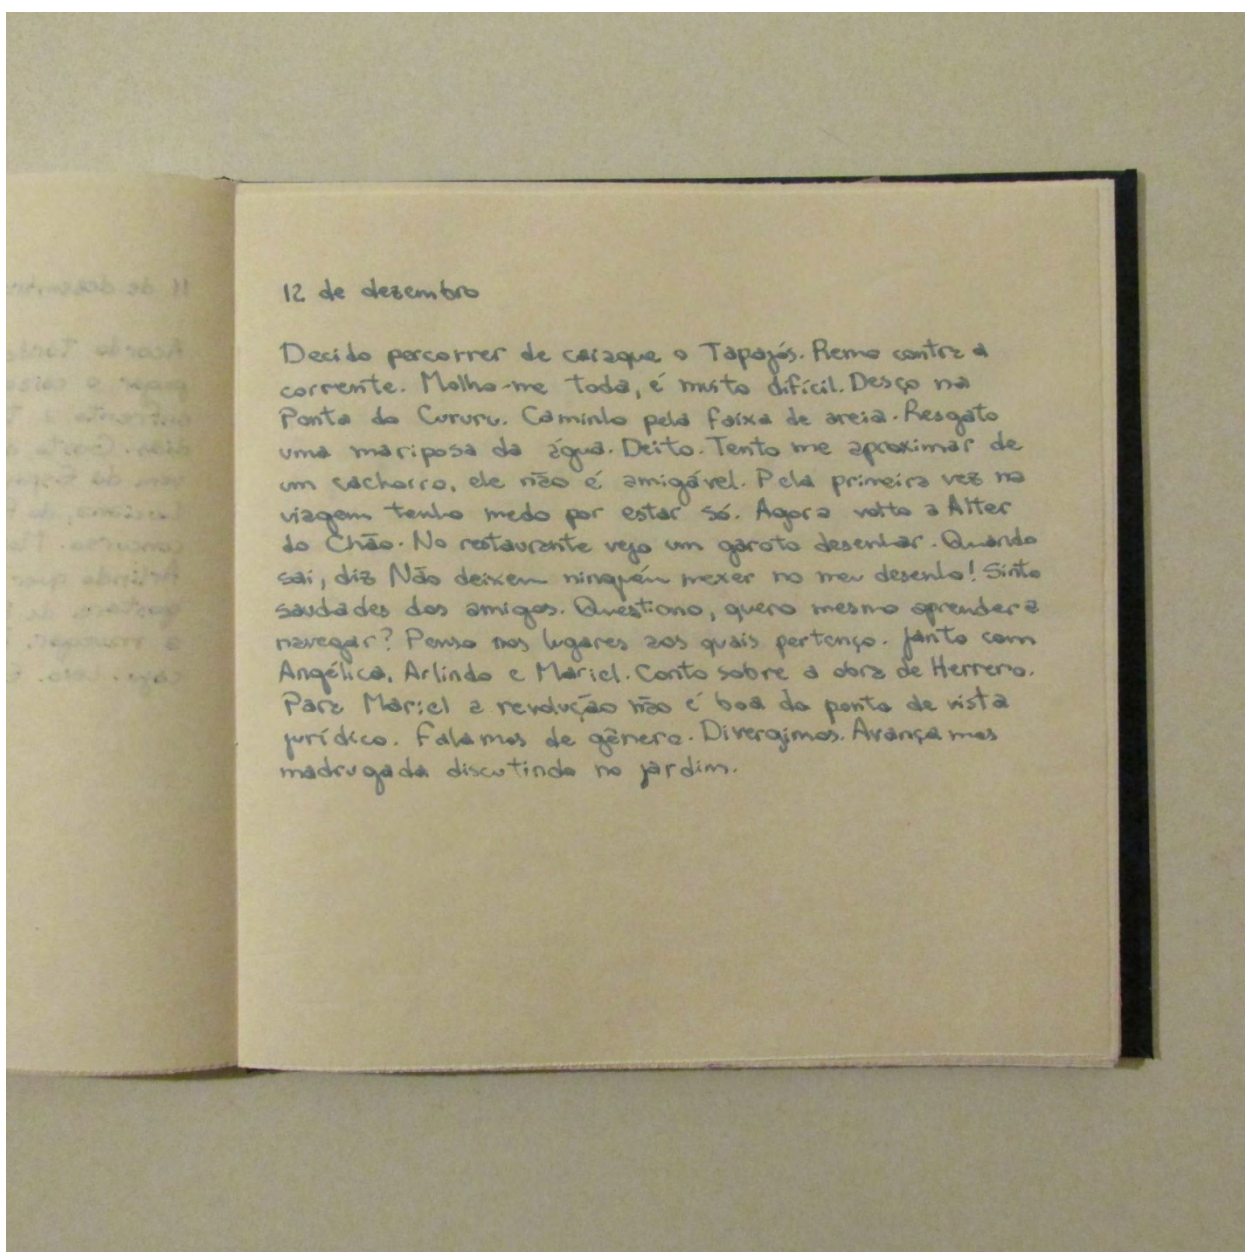 12 de dezembro
Decido percorrer de caiaque o Tapajós. Remo contra a
corrente. Molho-me toda, é muito difícil. Desço na
Ponta do Cururu. Caminho pela faixa de areia. Resgato
uma mariposa da água. Deito. Tento me aproximar de
um cachorro, ele não é amigável. Pela primeira vez na
viagem tenho medo por estar só. Agora volto a Alter
do Chão. No restaurante vejo um garoto desenhar. Quando
sai, diz Não deixem ninguém mexer no meu desenho! Sinto
saudades dos amigos. Questiono, quero mesmo aprender a
navegar? Penso nos lugares aos quais pertenço. Janto com
Angélica, Arlindo e Mariel. Conto sobre a obra de Herrero.
Para Mariel a revolução não é boa do ponto de vista
jurídico. Falamos de gênero. Divergimos. Avançamos
madrugada discutindo no jardim.